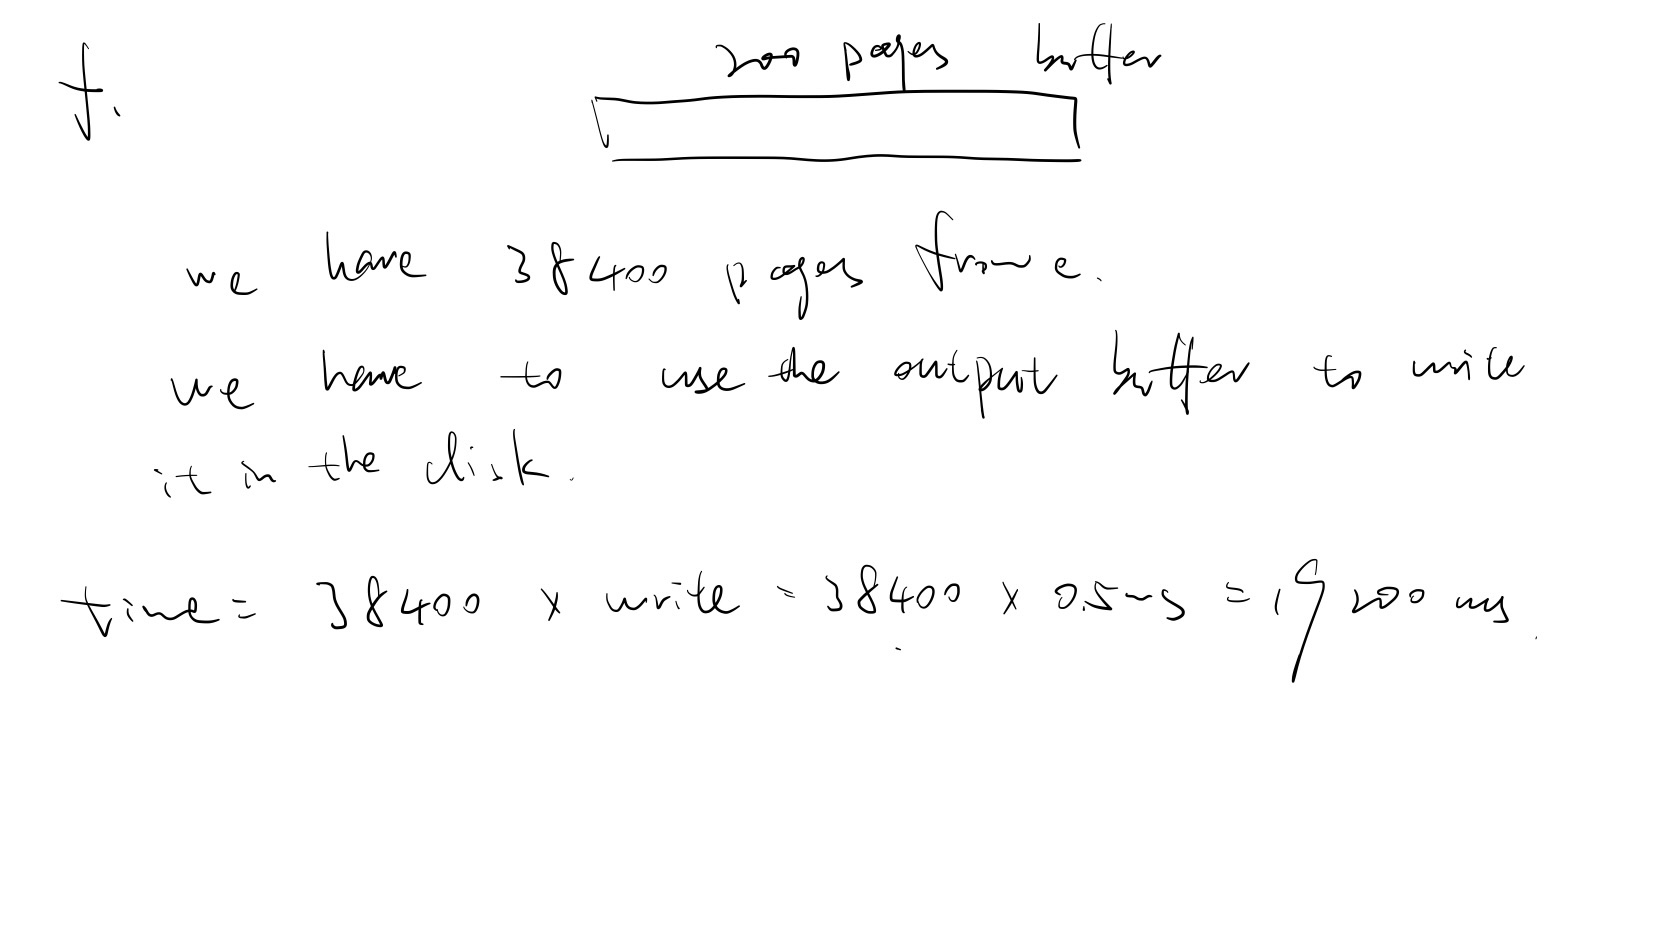 f.
200 pages buffer
we have 38400 pages frame.
we have to use the output buffer to write
it in the disk.
time = 38400 x write = 38400 x 0.5ms = 19200 ms.